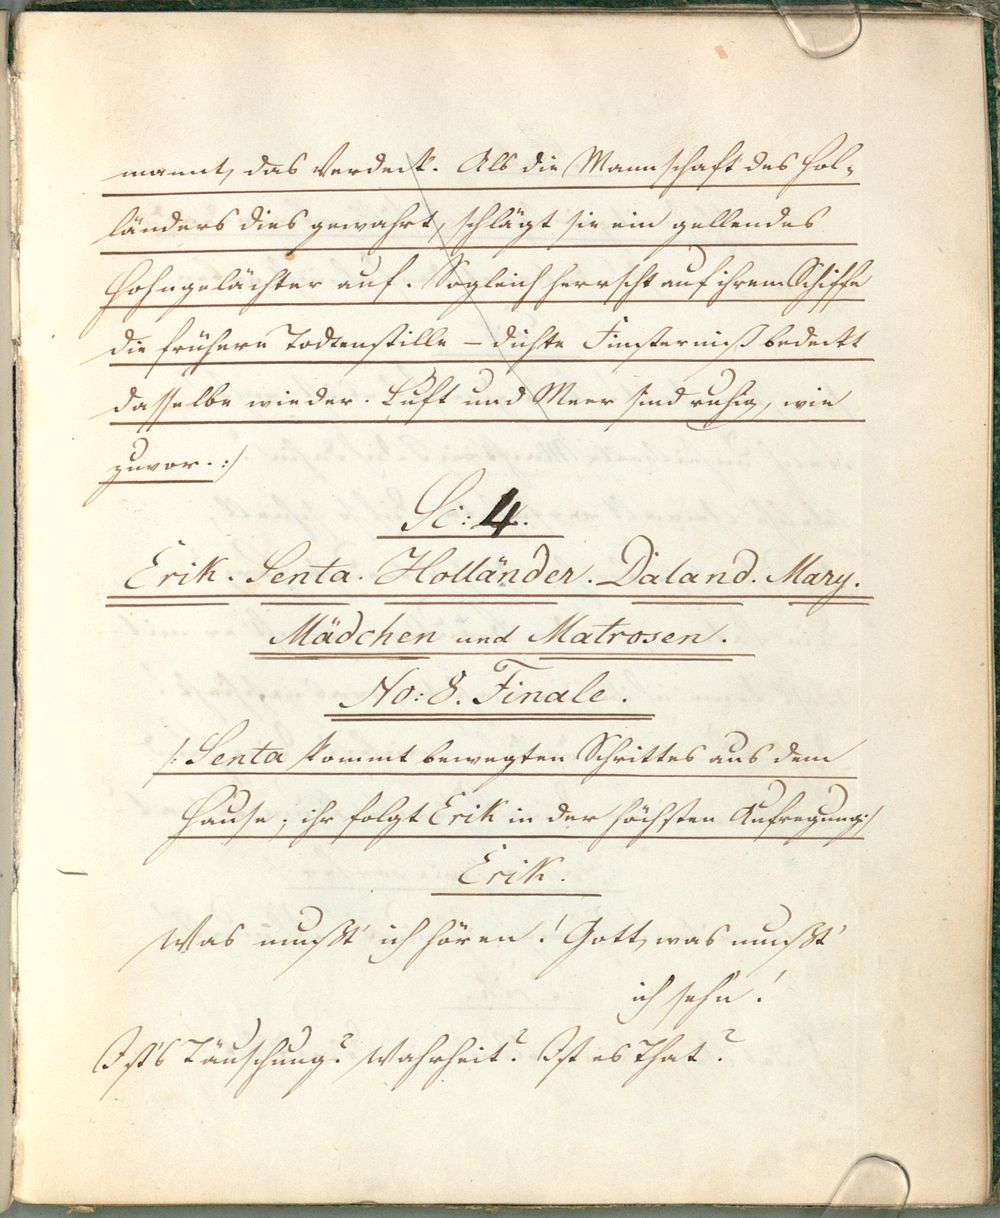 mannt, das Verdeck. Als die Mannschaft des Hol-
länders dies gewahrt, schlägt sie ein gellendes
Hohngelächter auf. Sogleich herrscht auf ihrem Schiffe
die frühere Todtenstille – dichte Finsterniß bedeckt
dasselbe wieder. Luft und Meer sind ruhig, wie
zuvor. :/
Sc: 4.
Erik. Senta. Holländer. Daland. Mary.
Mädchen und Matrosen.
No: 8. Finale.
/: Senta kommt bewegten Schrittes aus dem
Hause; ihr folgt Erik in der höchsten Aufregung :/
Erik.
Was mußt' ich hören! Gott, was mußt'
ich sehn!
Ist's Täuschung? Wahrheit? Ist es That?